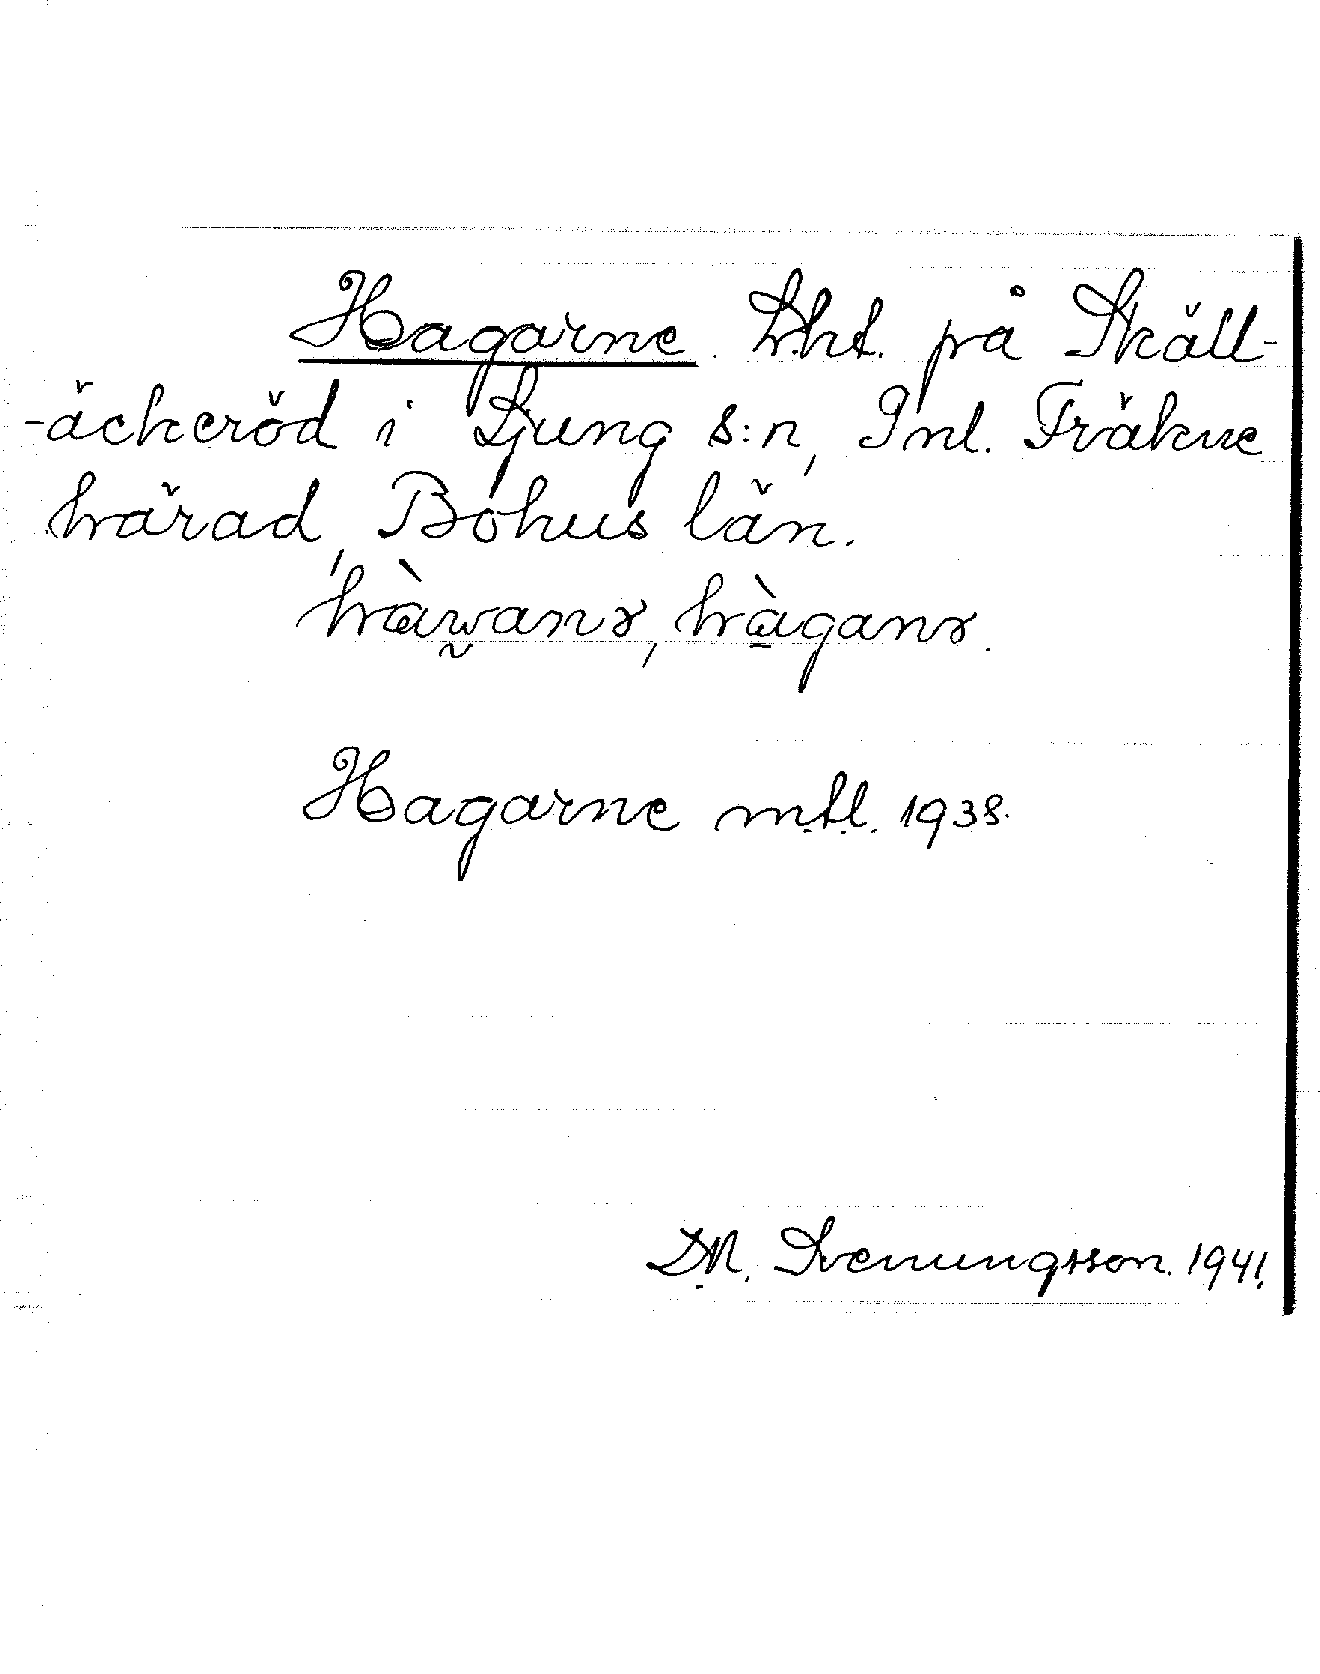 Hagarne. Lht. på Skäll-
-äckeröd i Ljung s:n, Inl. Fräkne
härad, Bohus län.
hàwanɤ, hàganɤ.
Hagarne mtl. 1938.
D.N. Svenungsson. 1941.